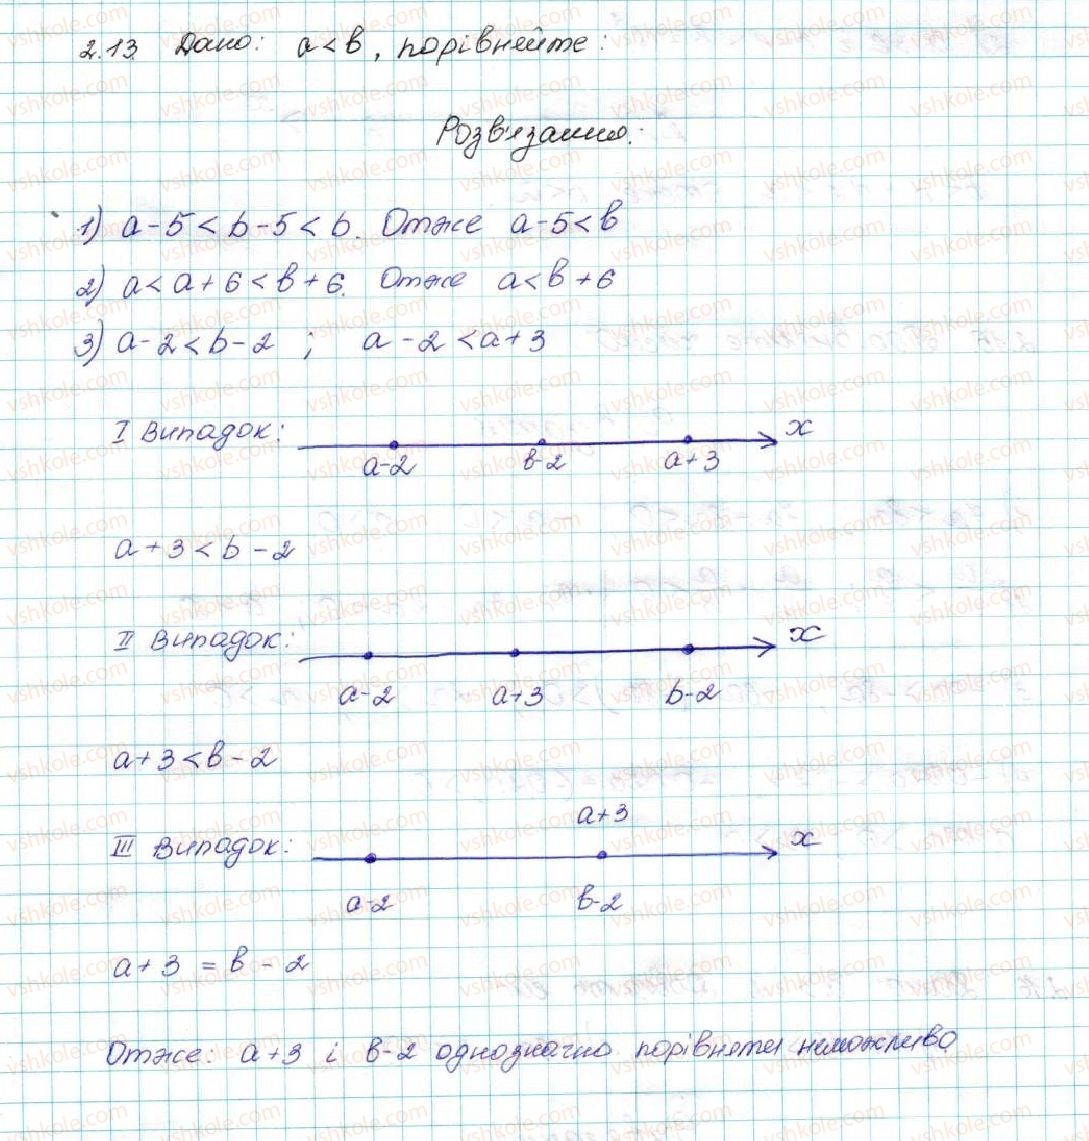 2.13. Дано: a < b, порівняйте:
Розв'язання:
1) a - 5 < b - 5 < b. Отже a - 5 < b
2) a < a + 6 < b + 6. Отже a < b + 6
3) a - 2 < b - 2 ; a - 2 < a + 3
I Випадок:
x
a-2 b-2 a+3
a + 3 < b - 2
II Випадок:
x
a-2 a+3 b-2
a + 3 < b - 2
a+3
III Випадок:
x
a-2 b-2
a + 3 = b - 2
Отже: a+3 і b-2 однозначно порівняти неможливо